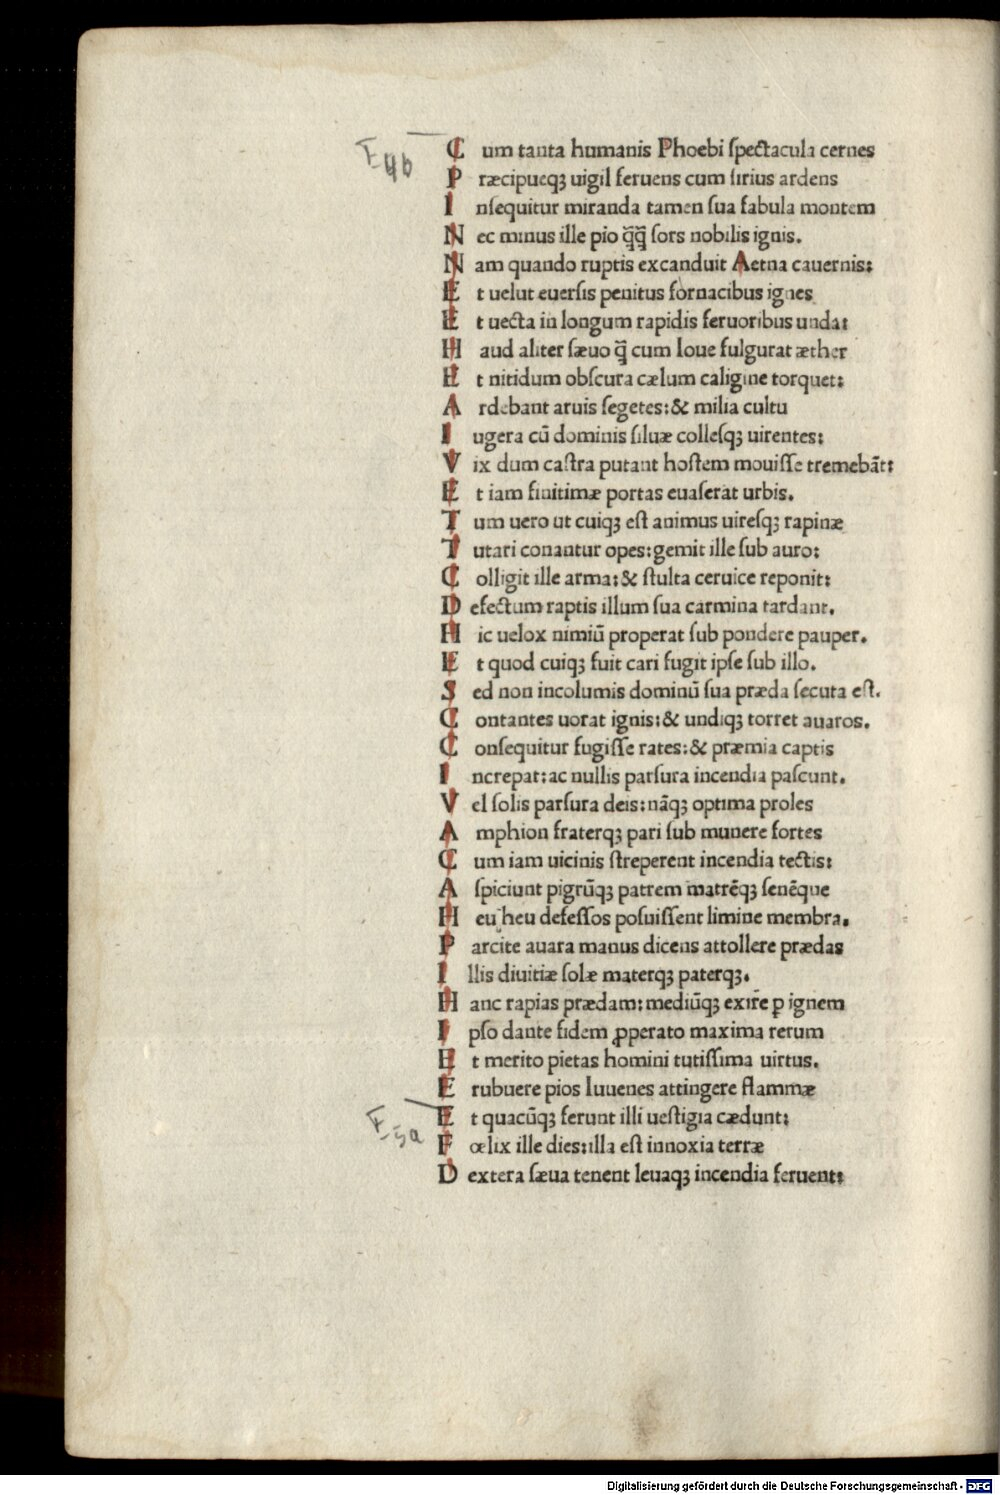 F 4b
C um tanta humanis Phoebi ſpectacula cernes
P ræcipueqꝫ uigil feruens cum ſirius ardens
I nſequitur miranda tamen ſua fabula montem
N ec minus ille pio q̄q̄ ſors nobilis ignis.
N am quando ruptis excanduit Aetna cauernis:
E t uelut euerſis penitus fornacibus ignes
E t uecta in longum rapidis feruoribus unda:
H aud aliter ſæuo q̄ cum Ioue fulgurat æther
E t nitidum obſcura cælum caligine torquet:
A rdebant aruis ſegetes:& milia cultu
I ugera cū dominis ſiluæ colleſqꝫ uirentes:
V ix dum caſtra putant hoſtem mouiſſe tremebāt:
E t iam finitimæ portas euaſerat urbis.
T um uero ut cuiqꝫ eſt animus uireſqꝫ rapinæ
T utari conantur opes:gemit ille ſub auro:
C olligit ille arma:& ſtulta ceruice reponit:
D efectum raptis illum ſua carmina tardant.
H ic uelox nimiū properat ſub pondere pauper.
E t quod cuiqꝫ fuit cari fugit ipſe ſub illo.
S ed non incolumis dominū ſua præda ſecuta eſt.
C ontantes uorat ignis:& undiqꝫ torret auaros.
C onſequitur fugiſſe rates:& præmia captis
I ncrepat:ac nullis parſura incendia paſcunt.
V el ſolis parſura deis:nāqꝫ optima proles
A mphion fraterqꝫ pari ſub munere fortes
C um iam uicinis ſtreperent incendia tectis:
A ſpiciunt pigrūqꝫ patrem matrēqꝫ ſenēque
H eu heu defeſſos poſuiſſent limine membra.
P arcite auara manus dicens attollere prædas
I llis diuitiæ ſolæ materqꝫ paterqꝫ.
H anc rapias prædam:mediūqꝫ exire ꝑ ignem
I pſo dante fidem ꝓperato maxima rerum
E t merito pietas homini tutiſſima uirtus.
E rubuere pios Iuuenes attingere flammæ
F 5a
E t quacūqꝫ ferunt illi ueſtigia cædunt:
F œlix ille dies:illa eſt innoxia terræ
D extera ſæua tenent leuaqꝫ incendia feruent:
Digitalisierung gefördert durch die Deutsche Forschungsgemeinschaft - DFG